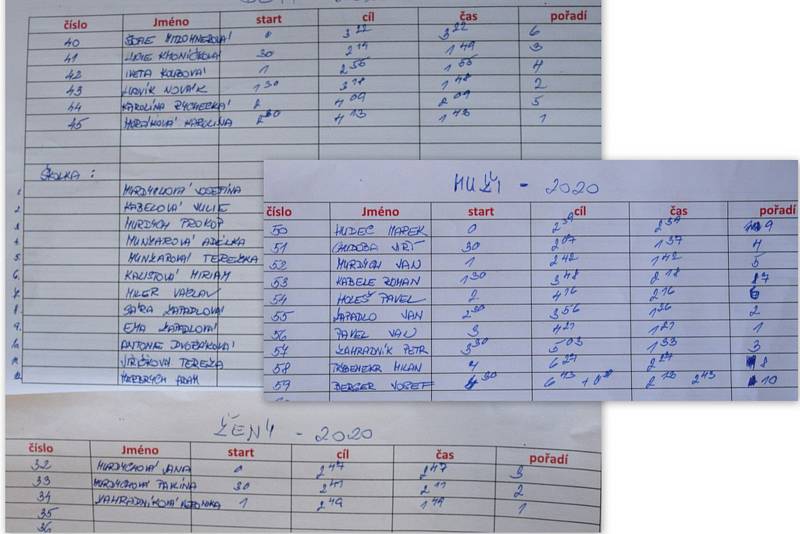 číslo Jméno start cíl čas pořadí
40 0 3 22 3 22 6
41 30 2 19 1 49 3
42 IVETA 1 2 56 1 56 4
43 LUDVÍK NOVÁK 1 30 3 18 1 48 2
44 KAROLÍNA RYCHECKÁ 2 4 09 2 09 5
45 KAROLINA 2 30 4 13 1 43 1
ŠKOLKA :
1. MURDYCHOVÁ JOSEFÍNA
2. KABELOVÁ JULIE
3. MURDYCH PROKOP
4. MUNKAROVÁ ADÉLKA
5. MUNKAROVÁ TEREZKA
6. KAUSTOVÁ MIRIAM
7. MILER VÁCLAV
8. SÁRA ZAPADLOVÁ
9. EMA ZAPADLOVÁ
10. ANTONIE DVOŘÁKOVÁ
11. JIŘIČKOVÁ TEREZA
12. ADAM
MUŽI - 2020
číslo Jméno start cíl čas pořadí
50 HUDEC MAREK 0 2 39 2 39 9
51 CHUDOBA JIŘÍ 30 2 07 1 37 4
52 MURDYCH JAN 1 2 42 1 42 5
53 KABELE ROMAN 1 30 3 48 2 18 7
54 HOLEŠ PAVEL 2 4 16 2 16 6
55 ZAPADLO JAN 2 30 3 56 1 26 2
56 PAVEL JAN 3 4 21 1 21 1
57 ZAHRADNÍK PETR 3 30 5 03 1 33 3
58 MILAN 4 6 27 2 27 8
59 BERGER JOZEF 4 30 6 43 2 13 2 43 10
ŽENY - 2020
číslo Jméno start cíl čas pořadí
32 MURDYCHOVÁ JANA 0 2 47 2 47 3
33 MURDYCHOVÁ PAVLÍNA 30 2 41 2 11 2
34 ZAHRADNÍKOVÁ VERONIKA 1 2 49 1 49 1
35
36